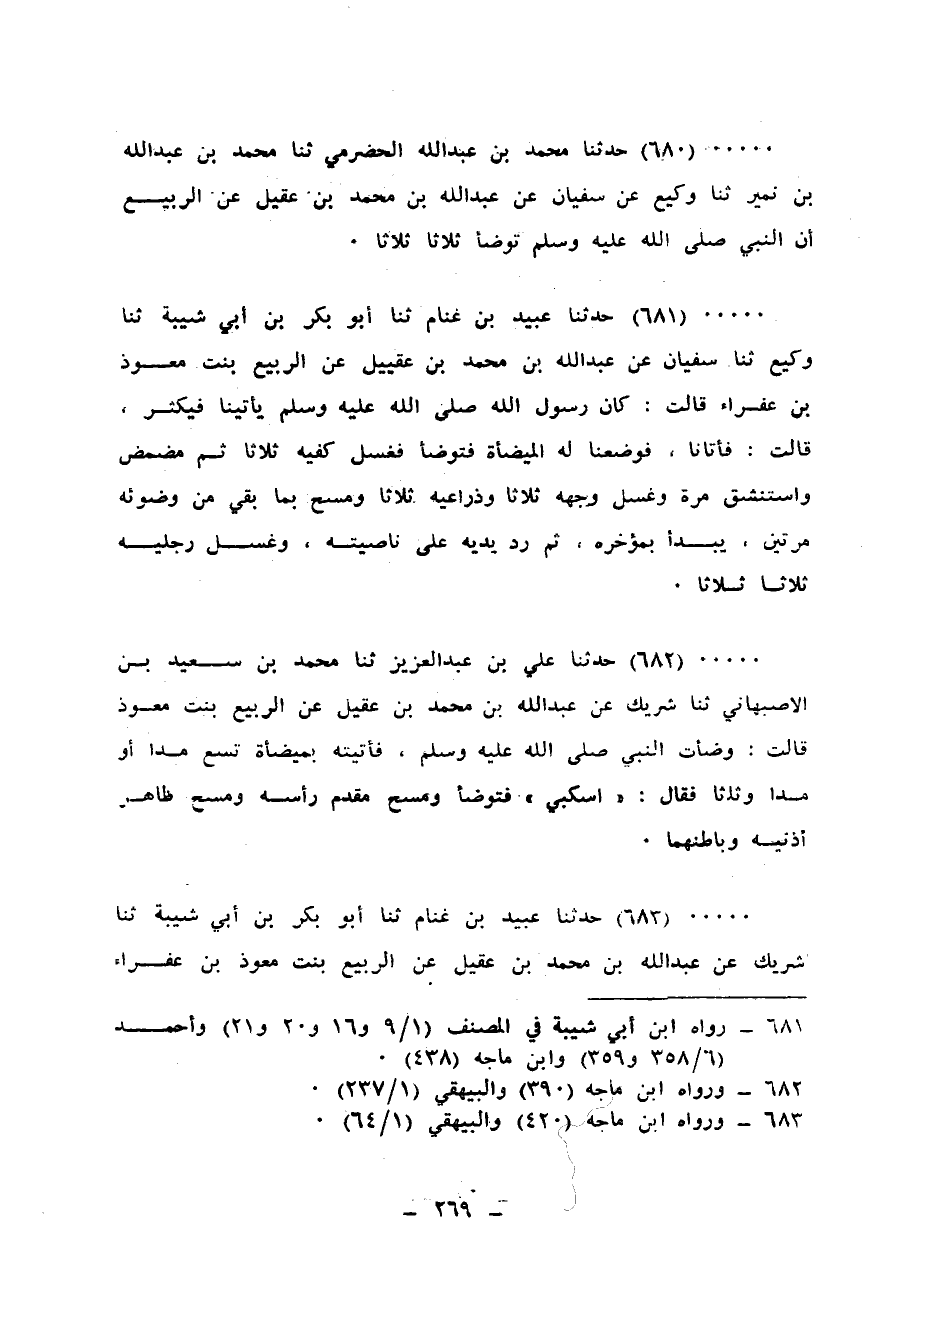 ٠٠٠٠٠ (٦٨٠) حدثنا محمد بن عبدالله الحضرمي ثنا محمد بن عبدالله
بن نمير ثنا وكيع عن سفيان عن عبدالله بن محمد بن عقيل عن الربيـــع
أن النبي صلى الله عليه وسلم توضأ ثلاثا ثلاثا ٠
٠٠٠٠٠ (٦٨١) حدثنا عبيد بن غنام ثنا أبو بكر بن أبي شيبة ثنا
وكيع ثنا سفيان عن عبدالله بن محمد بن عقييل عن الربيع بنت معـــوذ
بن عفــراء قالت : كان رسول الله صلى الله عليه وسلم يأتينا فيكثــر ،
قالت : فأتانا ، فوضعنا له الميضأة فتوضأ فغسل كفيه ثلاثا ثــم مضمض
واستنشق مرة وغسل وجهه ثلاثا وذراعيه ثلاثا ومسح بما بقي من وضوئه
مرتين ، يبـــدأ بمؤخره ، ثم رد يديه على ناصيتــه ، وغســـل رجليـــه
ثلاثــا ثــلاثا ٠
٠٠٠٠٠ (٦٨٢) حدثنا علي بن عبدالعزيز ثنا محمد بن ســـعيد بــن
الاصبهاني ثنا شريك عن عبدالله بن محمد بن عقيل عن الربيع بنت معــوذ
قالت : وضأت النبي صلى الله عليه وسلم ، فأتيته بميضأة تسع مــدا أو
مــدا وثلثا فقال : « اسكبي » فتوضأ ومسح مقدم رأســه ومسح ظاهــر
أذنيــه وباطنهما ٠
٠٠٠٠٠ (٦٨٣) حدثنا عبيد بن غنام ثنا أبو بكر بن أبي شيبة ثنا
شريك عن عبدالله بن محمد بن عقيل عن الربيع بنت معوذ بن عفــراء
٦٨١ ــ رواه ابن أبي شيبة في المصنف (٩/١ و١٦ و٢٠ و٢١) وأحمـــد
(٣٥٨/٦ و٣٥٩) وابن ماجه (٤٣٨) ٠
٦٨٢ ــ ورواه ابن ماجه (٣٩٠) والبيهقي (٢٣٧/١) ٠
٦٨٣ ــ ورواه ابن ماجه (٤٢٠) والبيهقي (٦٤/١) ٠
ــ ٢٦٩ ــ